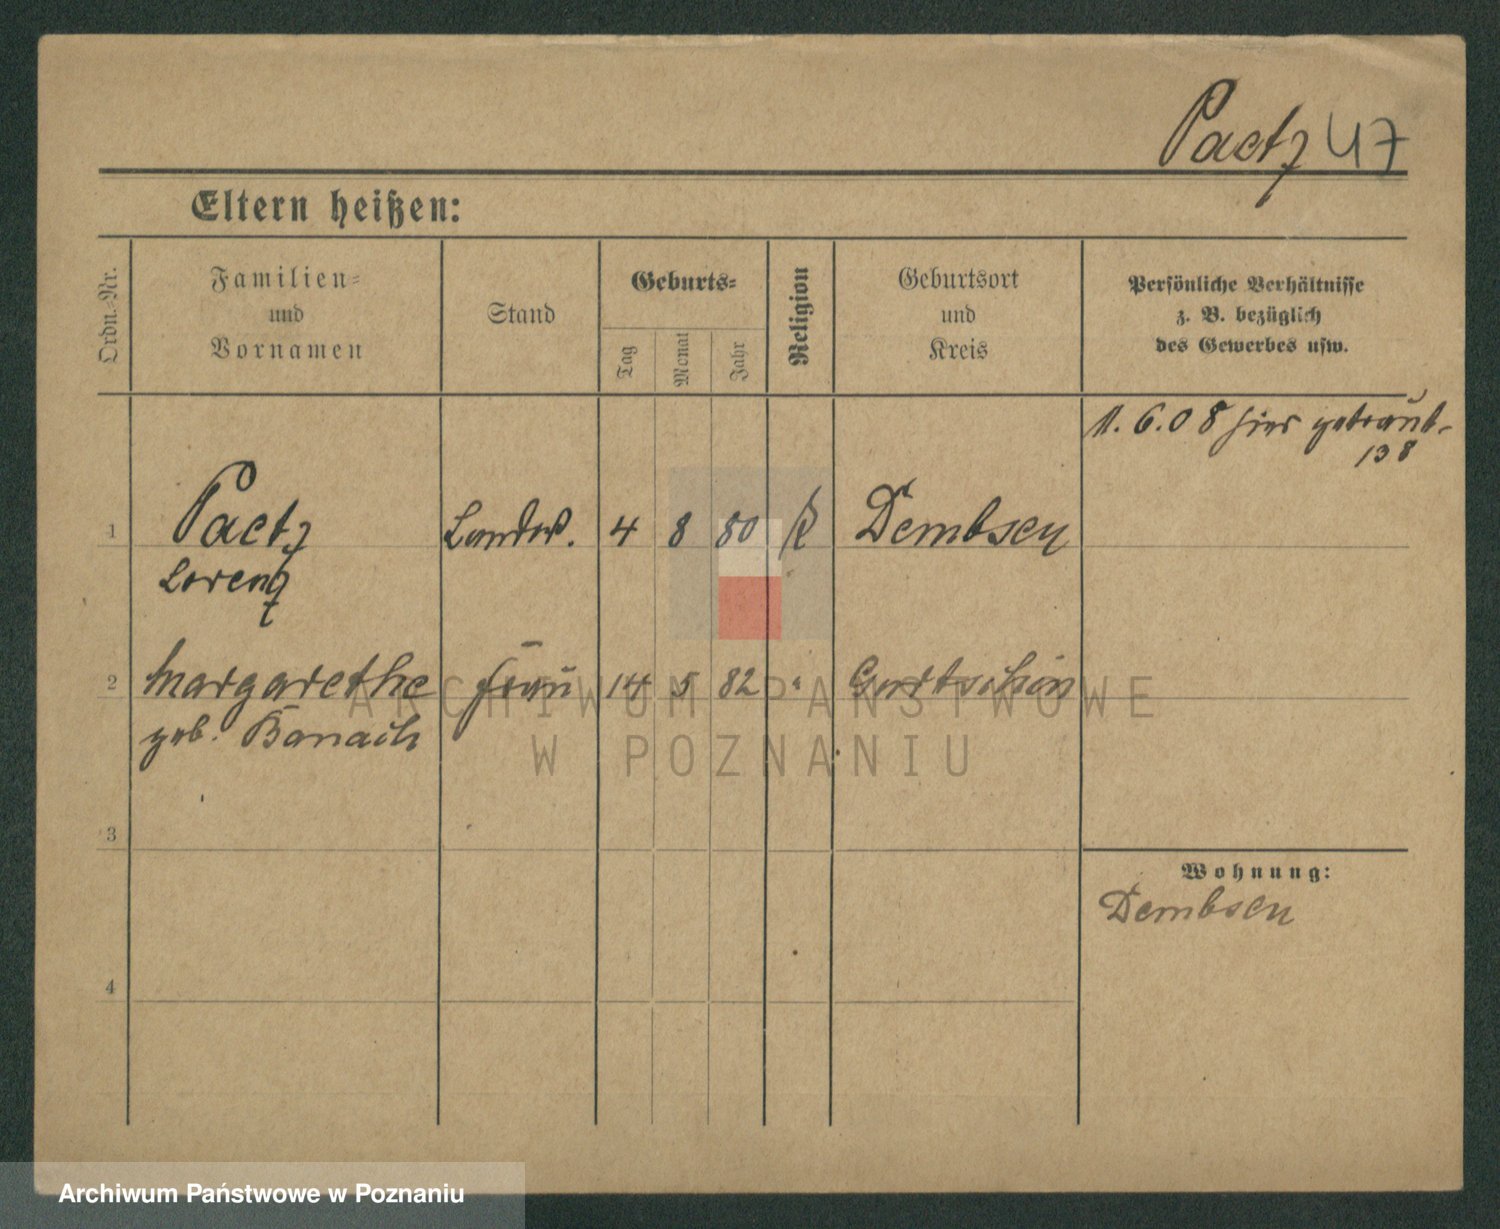 Paetz 47
Eltern heißen:
Ordn.-Nr.
Familien-
und
Vornamen
Stand
Geburts-
Tag
Monat
Jahr
Religion
Geburtsort
und
Kreis
Persönliche Verhältnisse
z. B. bezüglich
des Gewerbes usw.
11. 6. 08 hier getraut.
138
1 Paetz Landw. 4 8 80 k Dembsen
Lorenz
2 Margarethe Frau 14 5 82 " Gurtschin
geb. Banach
3
Wohnung:
Dembsen
4
ARCHIWUM PAŃSTWOWE
W POZNANIU
Archiwum Państwowe w Poznaniu